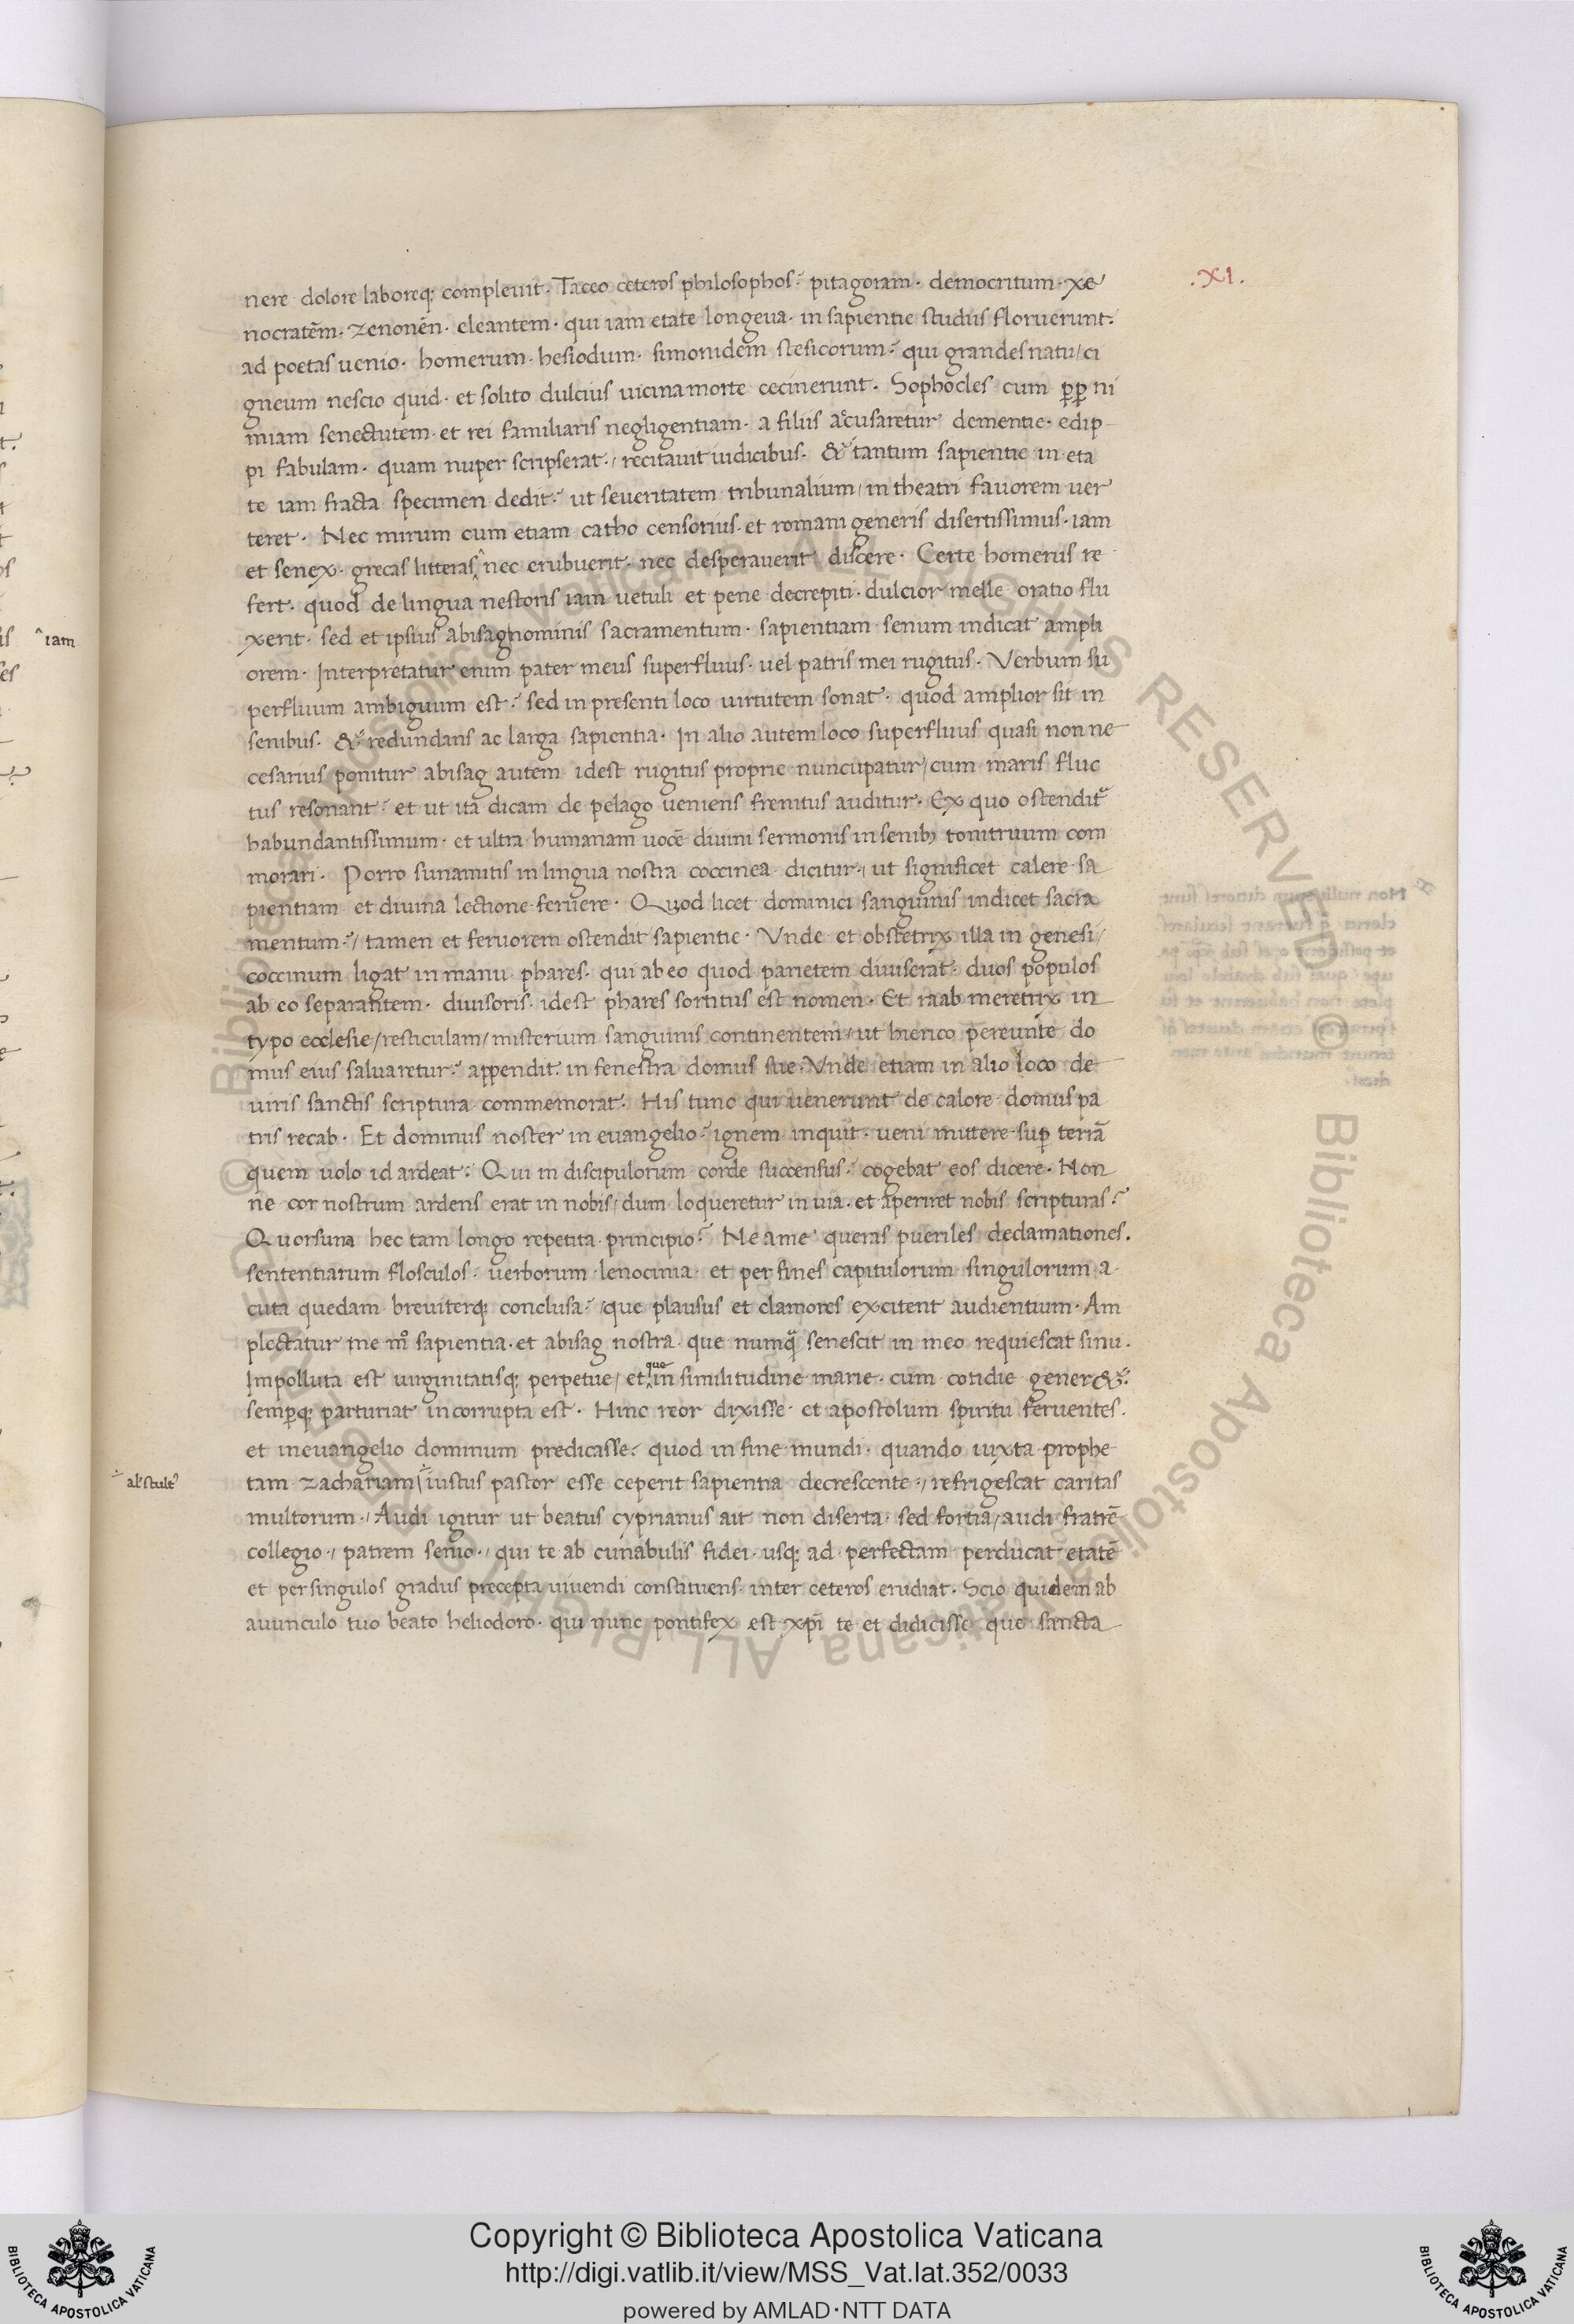 .XI.
nere dolore laboreq; complevit. Taceo ceteros philosophos: pitagoram. democritum. xe
nocratēm. zenonēn. cleantem. qui iam etate longeva. in sapientie studiis floruerunt.
ad poetas uenio. homerum. hesiodum. simonidem stesicorum: qui grandes natu/ ci
gneum nescio quid. et solito dulcius uicina morte cecinerunt. Sophocles cum ꝑꝑ ni
miam senectutem. et rei familiaris negligentiam. a filiis accusaretur dementie. edip-
pi fabulam. quam nuper scripserat./ recitavit iudicibus. & tantum sapientie in eta
te iam fracta specimen dedit: ut severitatem tribunalium/ in theatri favorem uer
teret. Nec mirum cum etiam catho censorius. et romani generis disertissimus. iam
et senex. grecas litteras ^ nec erubuerit. nec desperaverit discere. Certe homerus re
fert. quod de lingua nestoris iam uetuli et pene decrepiti. dulcior melle oratio flu
xerit. sed et ipsius abisag nominis sacramentum. sapientiam senum indicat ampli
^ iam
orem. Interpretatur enim pater meus superfluus. uel patris mei rugitus. Verbum su
perfluum ambiguum est: sed in presenti loco uirtutem sonat. quod amplior sit in
senibus. & redundans ac larga sapientia. In alio autem loco superfluus quasi non ne
cesarius ponitur abisag autem idest rugitus proprie nuncupatur/ cum maris fluc
tus resonant: et ut ita dicam de pelago ueniens fremitus auditur. Ex quo ostendit᷑
habundantissimum. et ultra humanam uocē divini sermonis in senibꝫ tonitruum com
morari. Porro sunamitis in lingua nostra coccinea dicitur./ ut significet calere sa
pientiam et divina lectione fervere. Quod licet dominici sanguinis indicet sacra
mentum:/ tamen et fervorem ostendit sapientie. Vnde et obstetrix illa in genesi/
coccinum ligat in manu phares. qui ab eo quod parietem diviserat. duos populos
ab eo separantem. divisoris. idest phares sortitus est nomen. Et raab meretrix in
typo ecclesie/ resticulam/ misterium sanguinis continentem/ ut hierico pereunte do
mus eius salvaretur: appendit. in fenestra domus sue. Vnde etiam in alio loco de
uiris sanctis scriptura commemorat. His tunc qui uenerunt de calore domus pa
tris recab. Et dominus noster in evangelio: ignem inquit. veni mittere suꝑ terrā
quem uolo id ardeat: Qui in discipulorum corde succensus: cogebat eos dicere. Non
ne cor nostrum ardens erat in nobis/ dum loqueretur in uia. et aperiret nobis scripturas?
Quorsum hec tam longo repetita principio? Ne a me queras pueriles declamationes.
sententiarum flosculos: uerborum lenocinia. et per fines capitulorum singulorum a
cuta quedam breviterq; conclusa:/ que plausus et clamores excitent audientium. Am
plectatur me mͦ sapientia. et abisag nostra que numqͣ senescit in meo requiescat sinu.
que
Impolluta est uirginitatisq; perpetue/ et ^ in similitudine marie. cum cotidie gener&:
semꝑq; parturiat incorrupta est. Hinc reor dixisse et apostolum spiritu ferventes.
et in evangelio dominum predicasse: quod in fine mundi. quando iuxta prophe
tam zachariam iustus pastor esse ceperit sapientia decrescente:/ refrigescat caritas
al' stult᷒
multorum./ Audi igitur ut beatus cyprianus ait non diserta. sed fortia/ audi fratrē
collegio./ patrem senio./ qui te ab cunabulis fidei usq; ad perfectam perducat etatē
et per singulos gradus precepta vivendi constituens inter ceteros erudiat. Scio quidem ab
avunculo tuo beato heliodoro. qui nunc pontifex est xp̄i te et didicisse que sancta
Copyright © Biblioteca Apostolica Vaticana
http://digi.vatlib.it/view/MSS_Vat.lat.352/0033
powered by AMLAD·NTT DATA
BIBLIOTECA APOSTOLICA VATICANA
BIBLIOTECA APOSTOLICA VATICANA